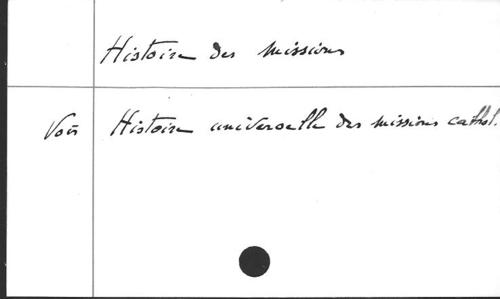 Histoire des missions
Voir Histoire universelle des missions cathol.